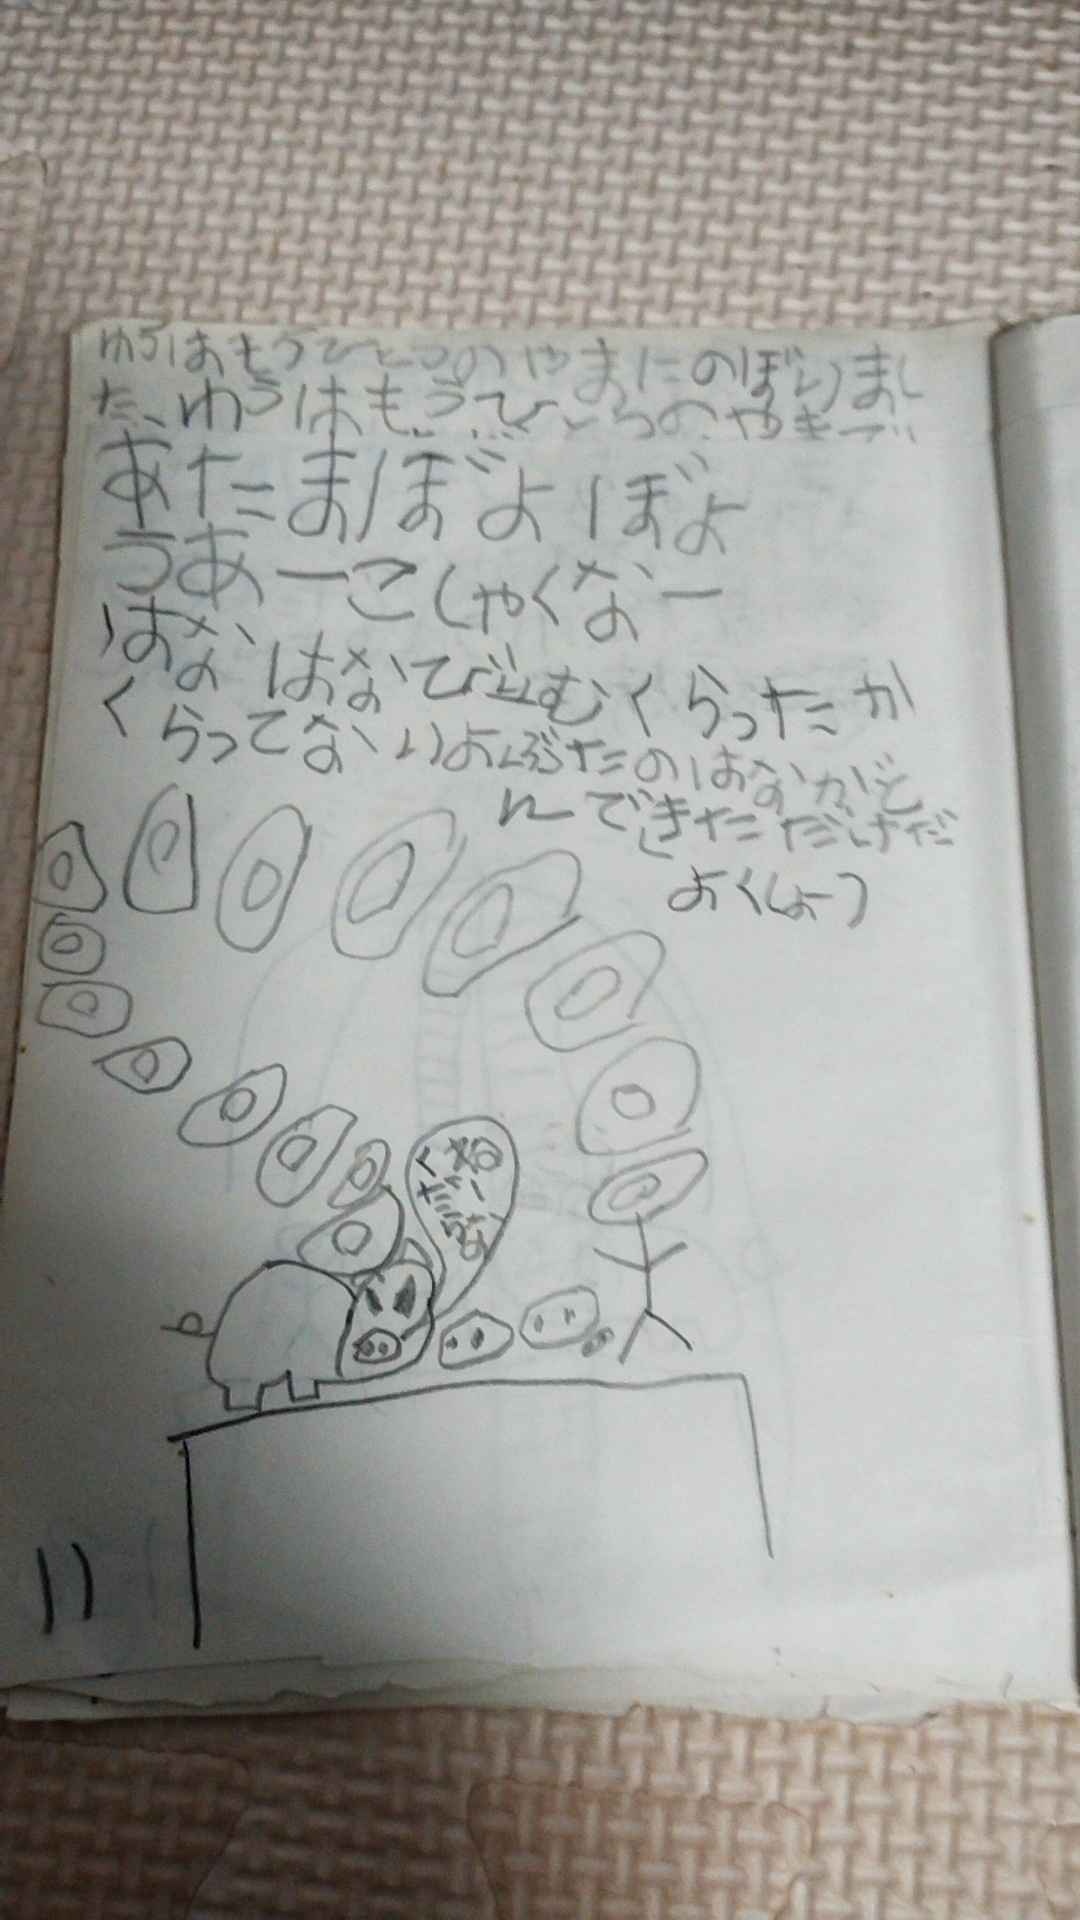 ゆうはもうひとつのやまにのぼりまし
た、ゆうはもうひとつのやまで
あたまぼよぼよ
うあーこしゃくなー
はなはなてびゅむくらったか
くらってないよぶたのはながと
んできただけだ
よくしょう
くだらな
11